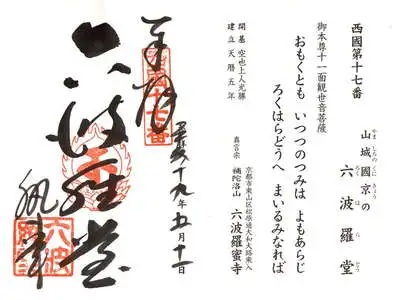 西國第十七番
山城國京の
やましろのくにきょう
六波羅堂
ろくはらどう
御本尊十一面観世音菩薩
おもくとも いつつのつみは よもあらじ
ろくはらどうへ まいるみなれば
開基 空也上人光勝
建立 天暦五年
京都市東山区松原通大和大路東入
真言宗 補陀洛山 六波羅蜜寺
奉拝
平成十九年五月十二日
六波羅堂